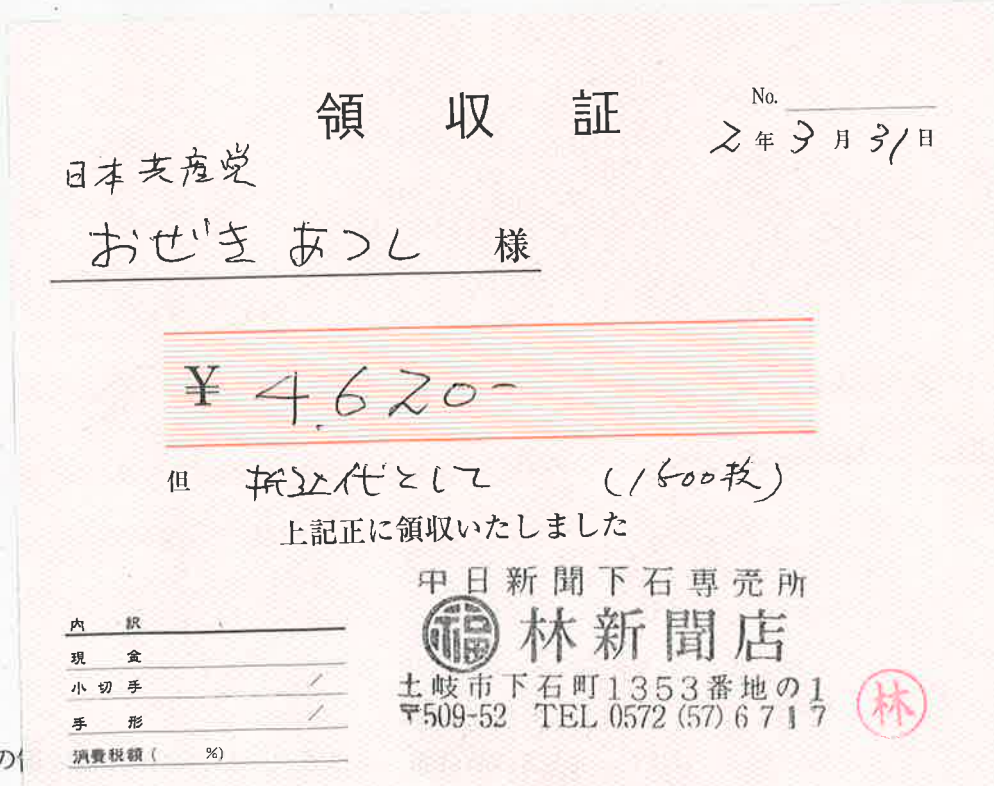 領収証
No.
2年3月31日
日本共産党
おぜきあつし 様
¥ 4,620-
但 折込代として (1500枚)
上記正に領収いたしました
中日新聞下石専売所
福 林新聞店
土岐市下石町1353番地の1
〒509-52 TEL 0572(57)6717
林
内訳
現金
小切手 /
手形 /
消費税額( %)